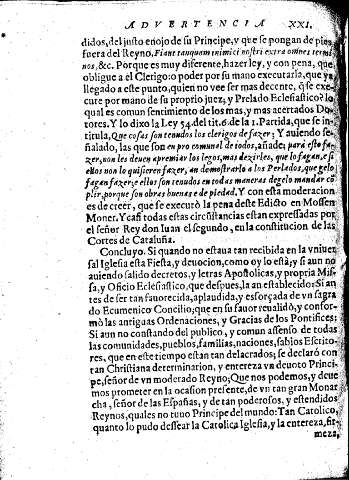 ADVERTENCIA XXI.
didos, del justo enojo de su Principe, y que se pongan de pies
fuera del Reyno. Fiant tanquam inimici nostri extra omnes termi
nos, &c. Porque es muy diferente, hazer ley, y con pena, que
obligue a el Clerigo: o poder por su mano executarla, que ya
llegado a este punto, quien no vee ser mas decente, q̃ se exe-
cute por mano de su proprio juez, y Prelado Eclesiastico? lo
qual es comun sentimiento de los mas, y mas acertados Do-
tores. Y lo dixo la Ley 54. del tit. 6 de la 1. Partida, que se in-
titula, Que cosas son tenudos los clerigos de fazer; Y auiendo se-
ñalado, las que son en pro comunal de todos, añade; para esto fa-
zer, non les deuen apremiar los legos, mas dezirles, que lo fagan, e si
ellos non lo quisieren fazer, an demostrarlo a los Perlados, que gelo
fagan fazer; e ellos son tenudos en todas maneras de gelo mandar cũ
plir, porque son obras buenas e de piedad. Y con esta moderacion
es de creer, que se executò la pena deste Edicto en Mossen
Moner. Y casi todas estas circũstãcias estan expressadas por
el señor Rey don Iuan el segundo, en la constitucion de las
Cortes de Cataluña.
Concluyo. Si quando no estaua tan recibida en la vniuer
sal Iglesia esta Fiesta, y deuocion, como oy lo està; y si aun no
auiendo salido decretos, y letras Apostolicas, y propria Mis-
sa, y Oficio Eclesiastico, que despues, la an establecido: Si an
tes de ser tan fauorecida, aplaudida, y esforçada de vn sagra
do Ecumenico Concilio; que en su fauor reualidò, y confor-
mò las antiguas Ordenaciones, y Gracias de los Pontifices:
Si aun no constando del publico, y comun assenso de todas
las comunidades, pueblos, familias, naciones, sabios Escrito-
res, que en este tiempo estan tan delacrados; se declarò con
tan Christiana determinacion, y entereza vn deuoto Princi-
pe, señor de vn moderado Reyno; Que nos podemos, y deue
mos prometer en la ocasion presente, de vn tan gran Monar
cha, señor de las Españas, y de tan poderosos, y estendidos
Reynos, quales no tuuo Principe del mundo: Tan Catolico,
quanto lo pudo dessear la Catolica Iglesia, y la entereza, fir-
meza,